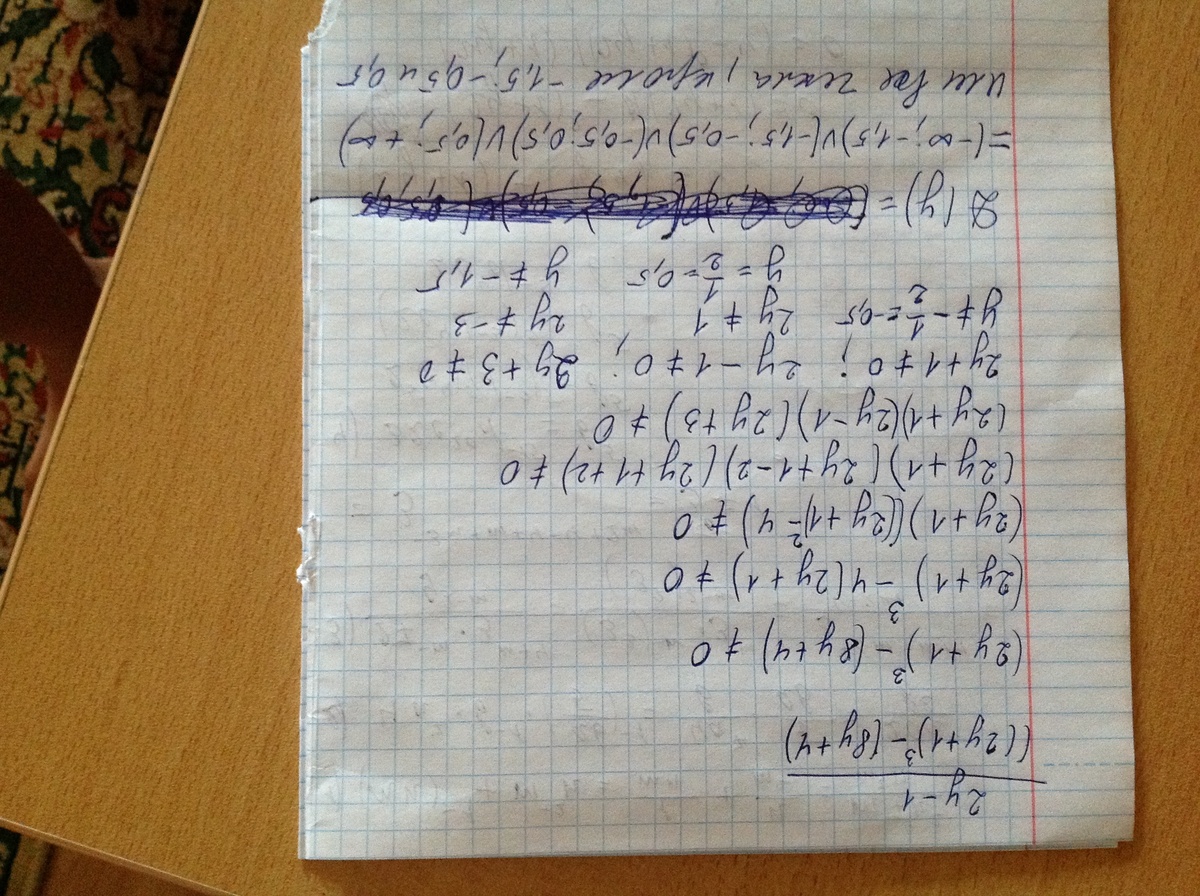 2y-1
((2y+1)³-(8y+4)
(2y+1)³-(8y+4) ≠ 0
(2y+1)³-4(2y+1) ≠ 0
(2y+1)((2y+1)²-4) ≠ 0
(2y+1)(2y+1-2)(2y+1+2) ≠ 0
(2y+1)(2y-1)(2y+3) ≠ 0
2y+1 ≠ 0; 2y-1 ≠ 0; 2y+3 ≠ 0
y ≠ -1/2 = -0,5 2y ≠ 1 2y ≠ -3
y = 1/2 = 0,5 y ≠ -1,5
D(y) =
= (-∞; -1,5)∪(-1,5; -0,5)∪(-0,5; 0,5)∪(0,5; +∞)
или все числа, кроме -1,5; -0,5 и 0,5